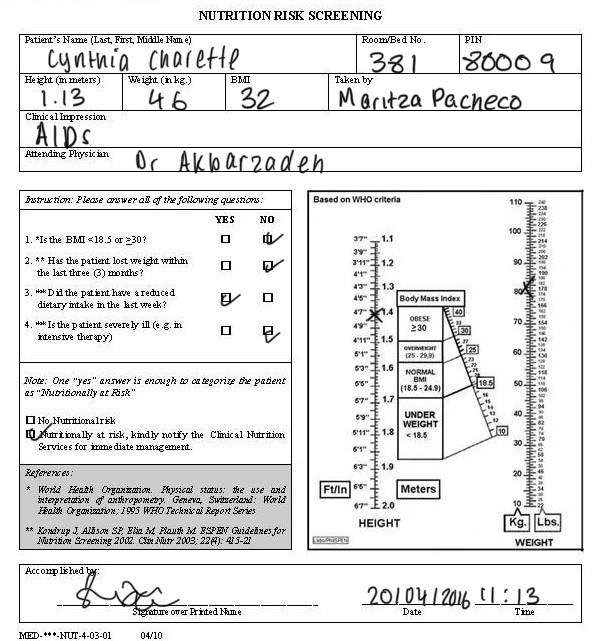 NUTRITION RISK SCREENING
Patient's Name (Last, First, Middle Name) Room/Bed No. PIN
Cynthia Charette 381 80009
Height (in meters) Weight (in kg.) BMI Taken by
1.13 46 32 Maritza Pacheco
Clinical Impression
AIDs
Attending Physician Dr Akbarzadeh
Instruction: Please answer all of the following questions:
YES NO
1. *Is the BMI <18.5 or ≥30?
2. ** Has the patient lost weight within
the last three (3) months?
3. **Did the patient have a reduced
dietary intake in the last week?
4. **Is the patient severely ill (e.g. in
intensive therapy)
Note: One "yes" answer is enough to categorize the patient
as "Nutritionally at Risk"
No Nutritional risk
Nutritionally at risk, kindly notify the Clinical Nutrition
Services for immediate management.
References:
* World Health Organization. Physical status: the use and
interpretation of anthropometry. Geneva, Switzerland: World
Health Organization; 1995 WHO Technical Report Series
** Kondrup J, Allison SP, Elia M, Plauth M. ESPEN Guidelines for
Nutrition Screening 2002. Clin Nutr 2003; 22(4): 415-21
Based on WHO criteria
3'7" 1.1
3'9"
3'11" 1.2
4'1"
4'3" 1.3
4'5"
4'7" 1.4
4'9"
4'11" 1.5
5'1"
5'3" 1.6
5'5"
5'7" 1.7
5'9"
5'11" 1.8
6'1"
6'3" 1.9
6'5"
6'7" 2.0
Ft/In Meters
HEIGHT
Body Mass Index
OBESE
≥30
OVERWEIGHT
(25 - 29,9)
NORMAL
BMI
(18.5 - 24.9)
UNDER
WEIGHT
< 18.5
40
30
25
18.5
10
110
100
90
80
70
60
50
40
30
20
10
Kg. Lbs.
WEIGHT
Accomplished by:
20/04/2016 11:13
Signature over Printed Name Date Time
MED-***-NUT-4-03-01 04/10